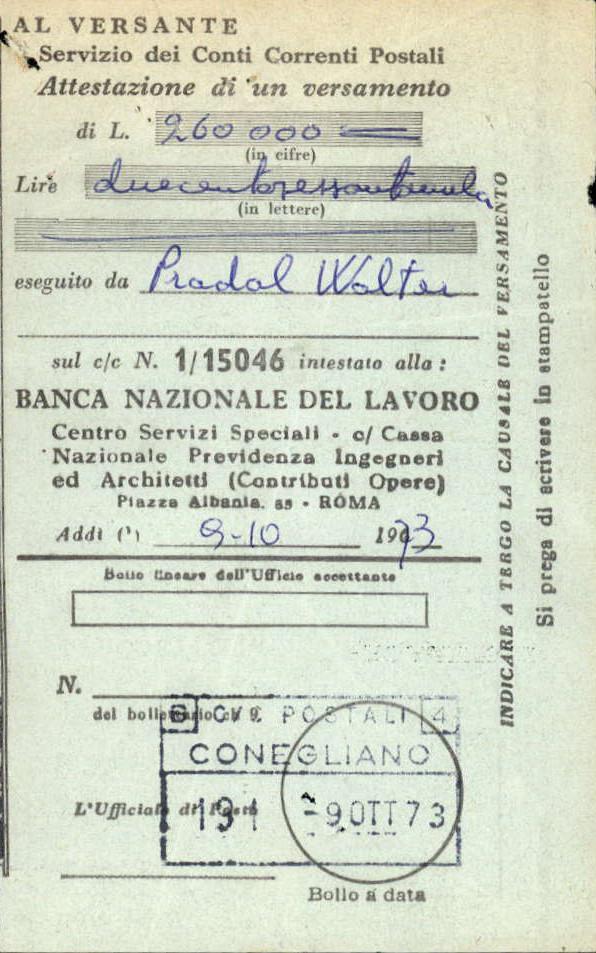 AL VERSANTE
Servizio dei Conti Correnti Postali
Attestazione di un versamento
di L. 260000
(in cifre)
Lire duecentosessantamila
(in lettere)
eseguito da Pradal Walter
sul c/c N. 1/15046 intestato alla:
BANCA NAZIONALE DEL LAVORO
Centro Servizi Speciali - c/ Cassa
Nazionale Previdenza Ingegneri
ed Architetti (Contributi Opere)
Piazza Albania, - ROMA
Addì (¹) 9-10 1973
Bollo lineare dell'Ufficio accettante
N.
del bollettario ch 9
C/C POSTALI 4
CONEGLIANO
L'Ufficiale di Posta
191 -9 OTT 73
Bollo a data
INDICARE A TERGO LA CAUSALE DEL VERSAMENTO
Si prega di scrivere in stampatello